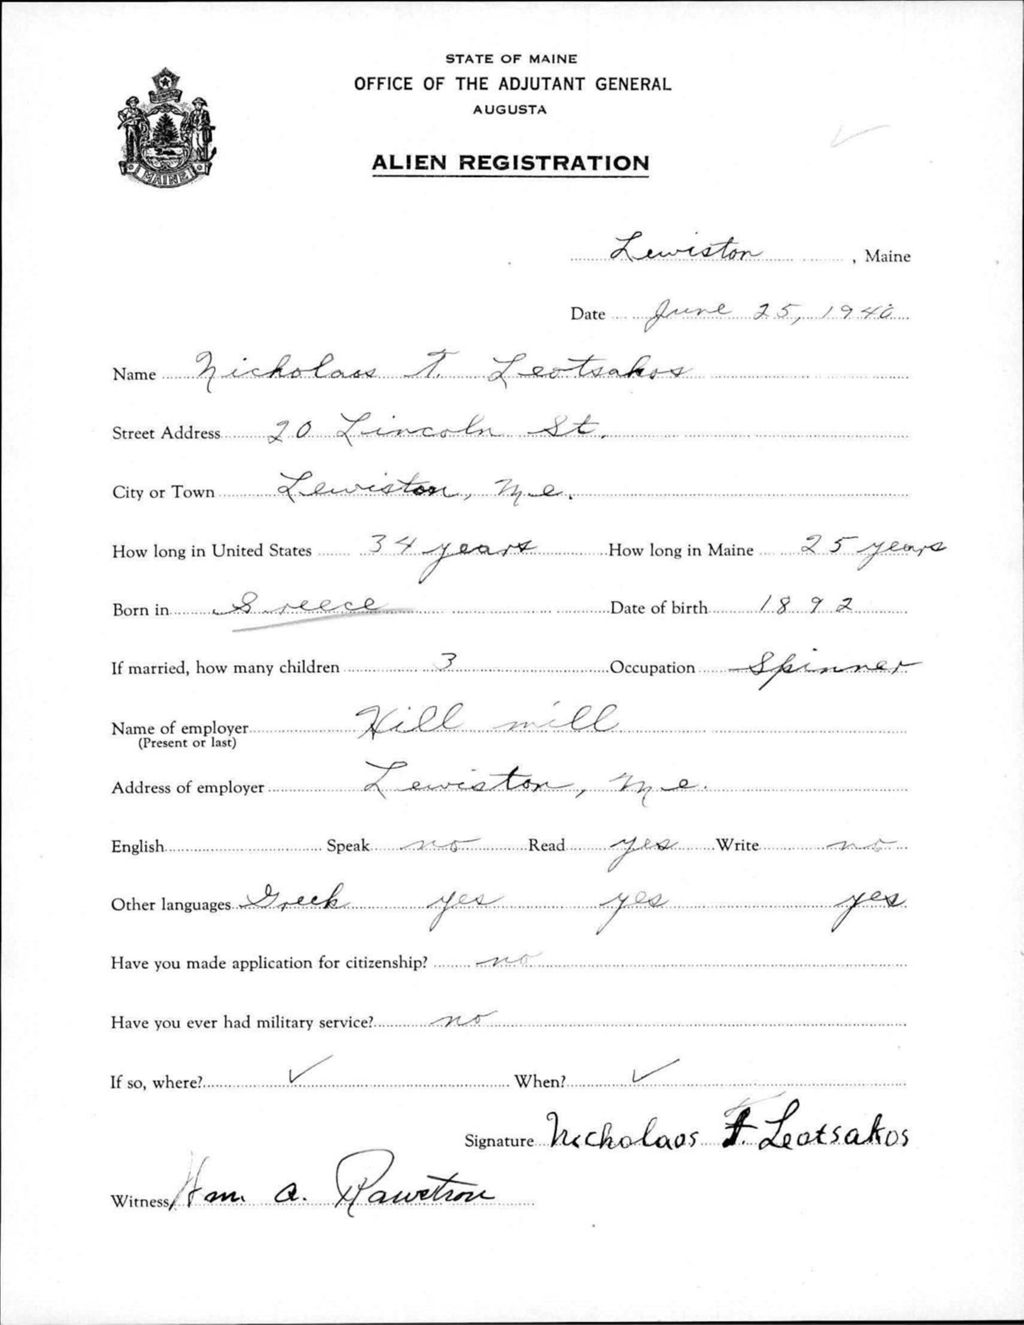 STATE OF MAINE
OFFICE OF THE ADJUTANT GENERAL
AUGUSTA
MAINE
ALIEN REGISTRATION
Lewiston, Maine
Date June 25, 1940
Name Nicholaos F. Leotsakos
Street Address 20 Lincoln St.
City or Town Lewiston, Me.
How long in United States 34 years How long in Maine 25 years
Born in Greece Date of birth 1892
If married, how many children 3 Occupation Spinner
Name of employer Hill mill
(Present or last)
Address of employer Lewiston, Me.
English Speak no Read yes Write no
Other languages Greek yes yes yes
Have you made application for citizenship? no
Have you ever had military service? no
If so, where? ✓ When? ✓
Signature Nicholaos F. Leotsakos
Witness Wm. A. Rawstron